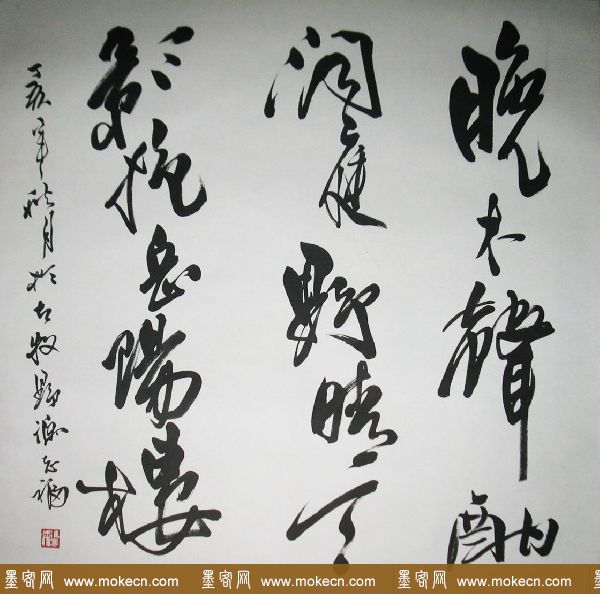 晚木聲酣
洞庭野晴天
影抱岳陽樓
丁亥年秋月於古牧野
墨客网 www.mokecn.com 墨客网 www.mokecn.com 墨客网 www.mokecn.com